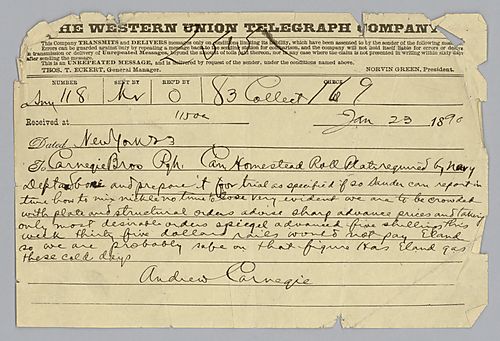 THE WESTERN UNION TELEGRAPH COMPANY.
This Company TRANSMITS and DELIVERS messages only on conditions limiting its liability, which have been assented to by the sender of the following message.
Errors can be guarded against only by repeating a message back to the sending station for comparison, and the company will not hold itself liable for errors or delays
in transmission or delivery of Unrepeated Messages, beyond the amount of tolls paid thereon, nor in any case where the claim is not presented in writing within sixty days
after sending the message.
This is an UNREPEATED MESSAGE, and is delivered by request of the sender, under the conditions named above.
THOS. T. ECKERT, General Manager. NORVIN GREEN, President.
NUMBER SENT BY REC'D BY CHECK
118 O 83 Collect 169
Received at 1100a Jan 23 1890
Dated New York 23
To Carnegie Bros Pgh. Can Homestead Roll Plate required by Navy
Dept above and prepare it for trial as specified if so can report in
time how to mix nickle no time to lose very evident we are to be crowded
with plate and structural orders advise sharp advance prices and taking
only most desirable orders spiegel advanced five shillings this
week thirty five dollars rails would not pay Eland
so we are probably safe on that figure Has Eland gas
these cold days
Andrew Carnegie